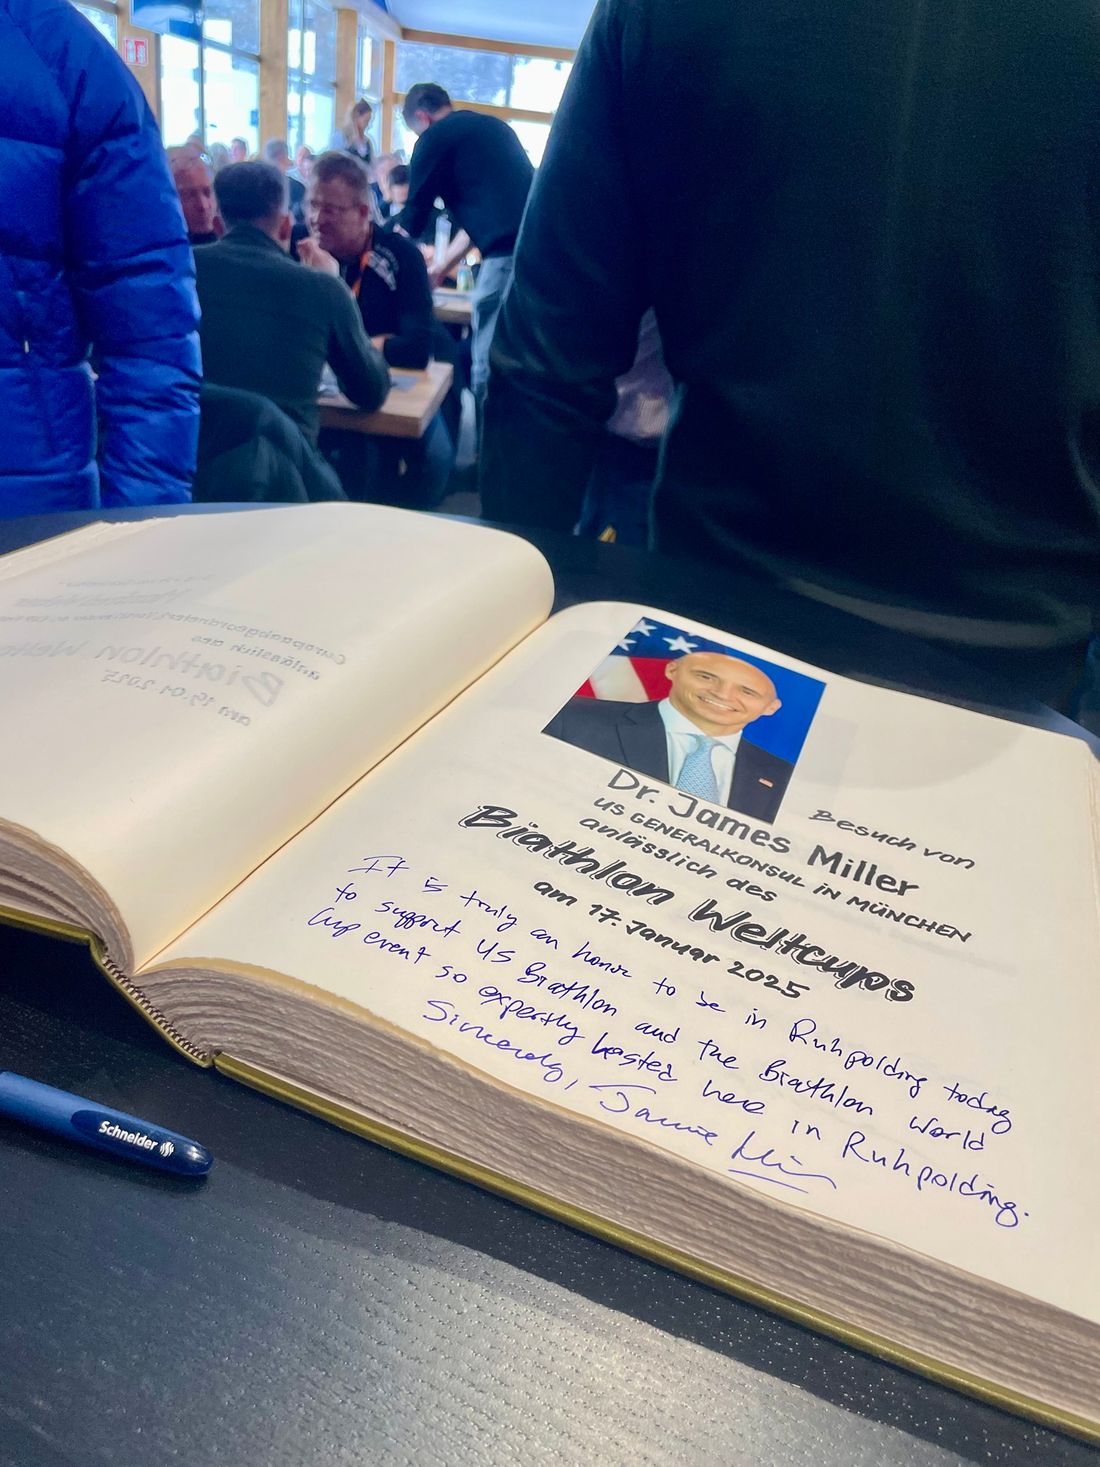 Besuch von
Dr. James Miller
US GENERALKONSUL iN MÜNCHEN
anlässlich des
Biathlon Weltcups
am 17. Januar 2025
It is truly an honor to be in Ruhpolding today
to support US Biathlon and the Biathlon World
Cup event so expertly hosted here in Ruhpolding.
Sincerely,
Europaabgeordneter
anlässlich des
Biathlon
am 19.01.2025
Schneider